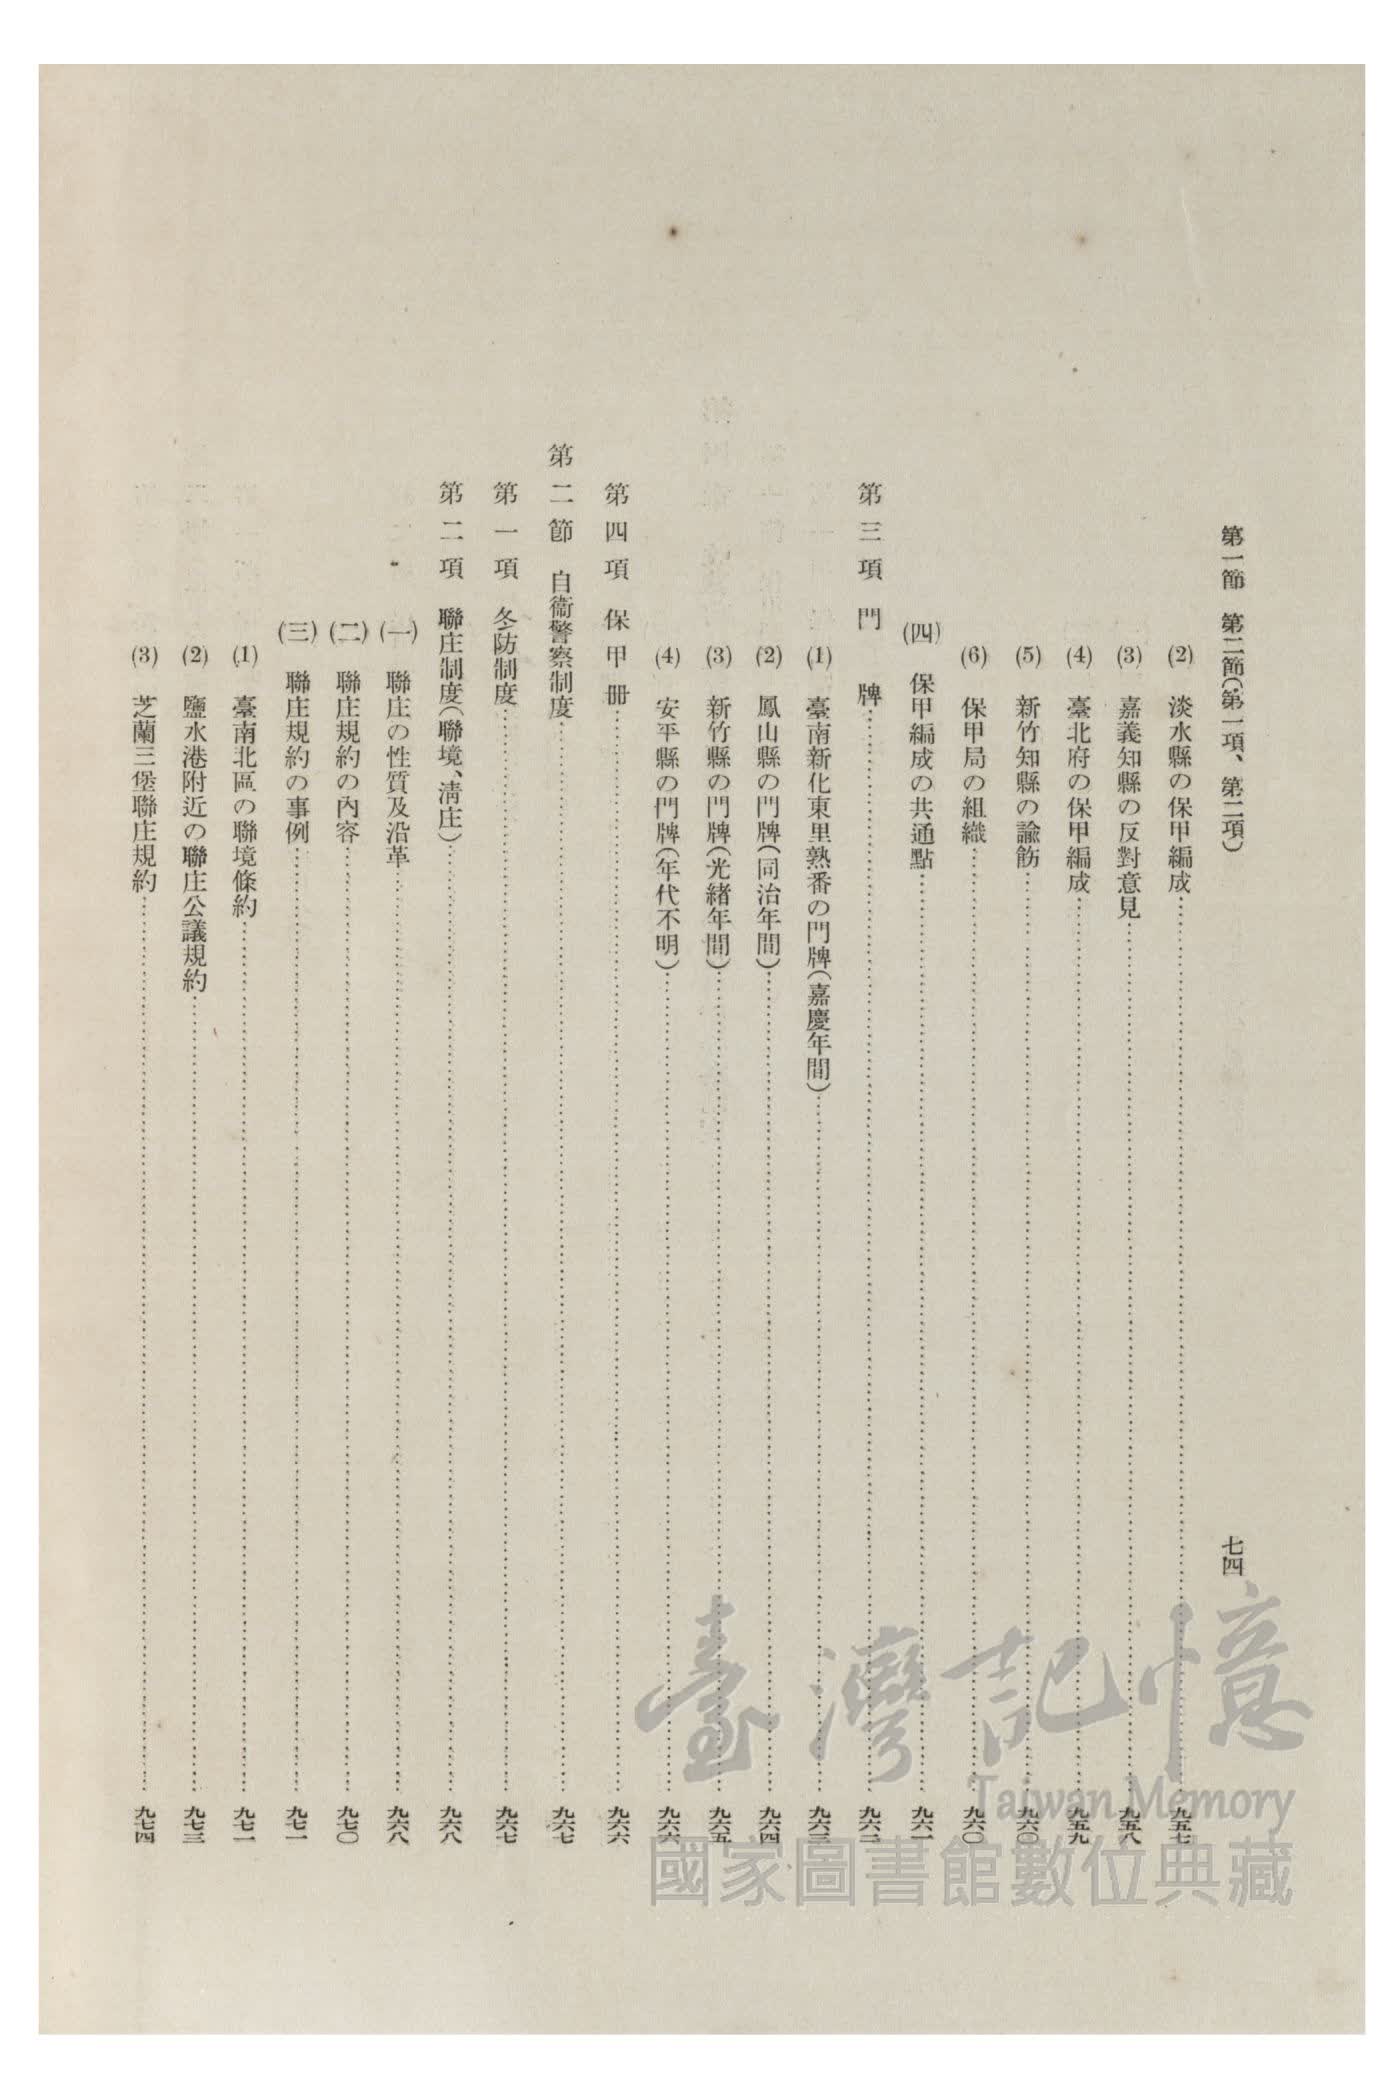 第一節　第二節(第一項、第二項)　七四
(2)　淡水縣の保甲編成……九五七
(3)　嘉義知縣の反對意見……九五八
(4)　臺北府の保甲編成……九五九
(5)　新竹知縣の諭飭……九六〇
(6)　保甲局の組織……九六〇
(四)　保甲編成の共通點……九六一
第三項　門　牌……九六二
(1)　臺南新化東里熟番の門牌(嘉慶年間)……九六三
(2)　鳳山縣の門牌(同治年間)……九六四
(3)　新竹縣の門牌(光緒年間)……九六五
(4)　安平縣の門牌(年代不明)……九六六
第四項　保甲册……九六六
第二節　自衞警察制度……九六七
第一項　冬防制度……九六七
第二項　聯庄制度(聯境、淸庄)……九六八
(一)　聯庄の性質及沿革……九六八
(二)　聯庄規約の內容……九七〇
(三)　聯庄規約の事例……九七一
(1)　臺南北區の聯境條約……九七一
(2)　鹽水港附近の聯庄公議規約……九七三
(3)　芝蘭三堡聯庄規約……九七四
臺灣記憶
Taiwan Memory
國家圖書館數位典藏